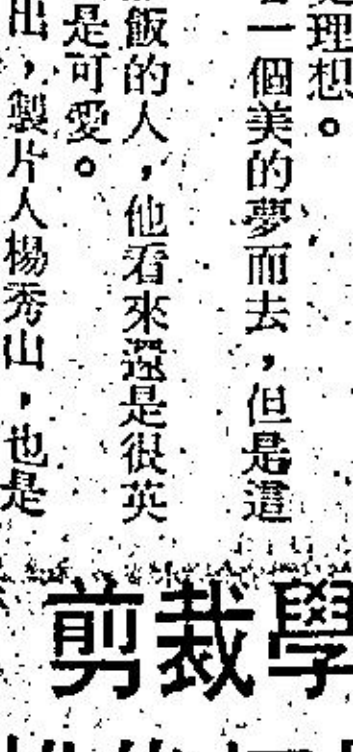 理想。
一個美的夢而去，但是這
飯的人，他看來還是很英
是可愛。
出，製片人楊秀山，也是
學裁剪